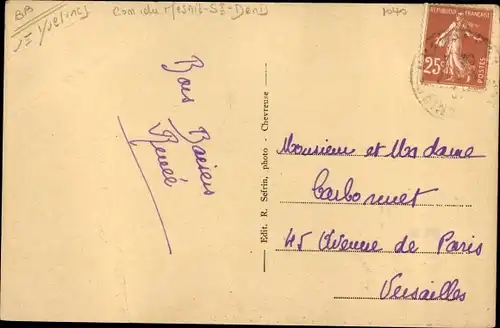 BB
1= Yvelines
Com du Mesnil-St-Denis
1040
REPUBLIQUE FRANÇAISE
25c
POSTES
Bons Baisers
Renée
Edit. R. Sefrin, photo - Chevreuse
Monsieur et Madame
Carbonnet
45 Avenue de Paris
Versailles